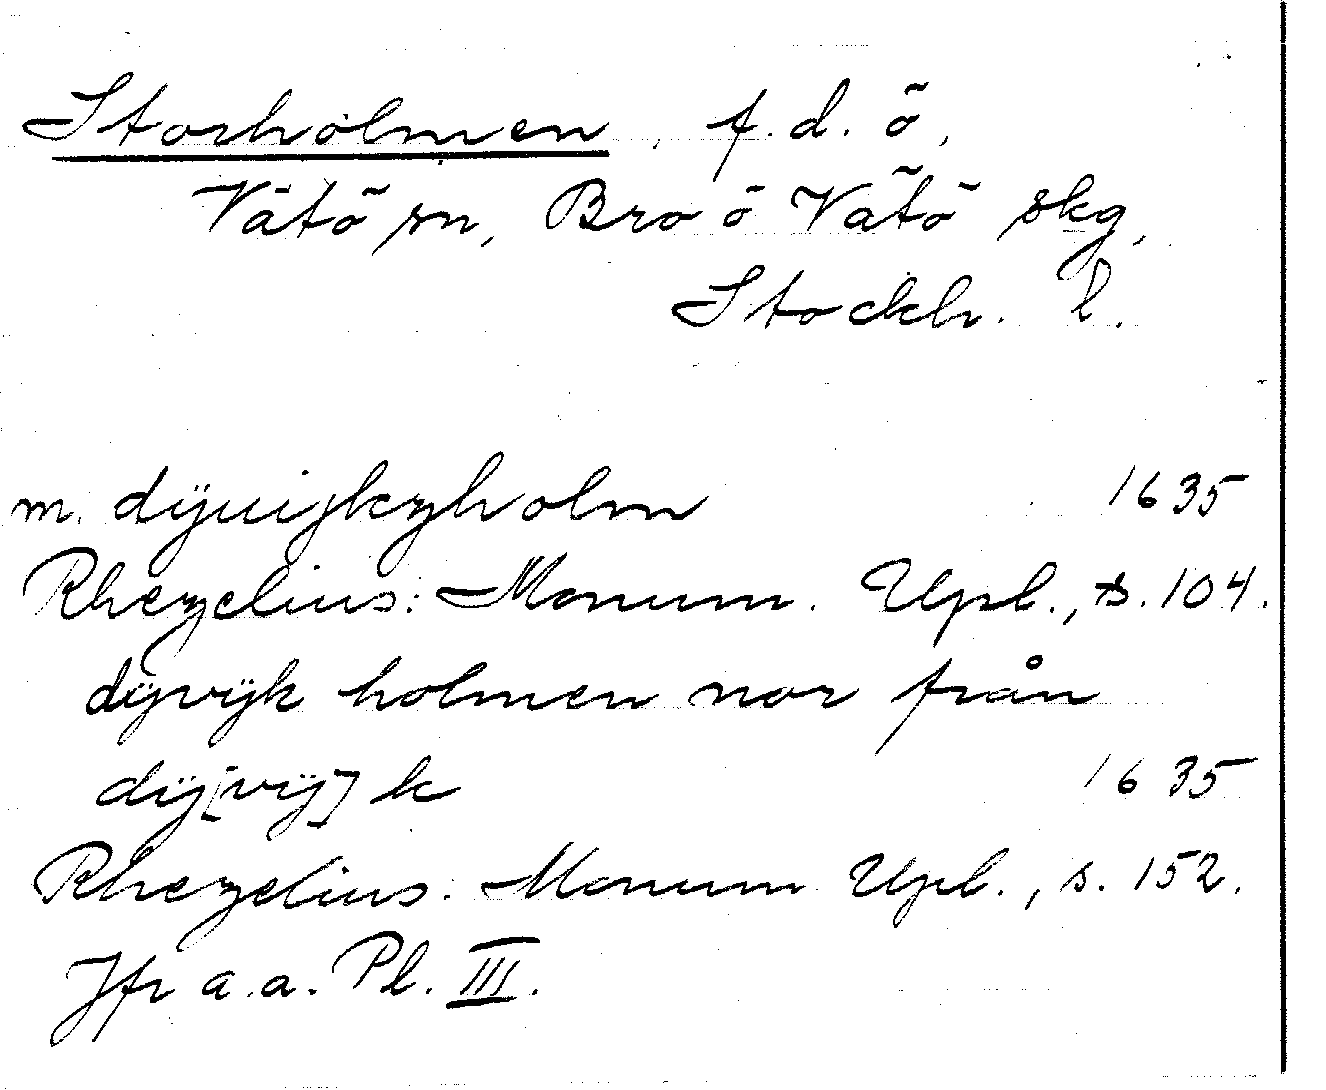 Storholmen, f.d. ö,
Vätö sn, Bro o Vätö skg,
Stockh. l.
m. dÿuijkzholm 1635
Rhezelius: Monum. Upl., s. 104.
dÿvÿk holmen nor från
dÿ[vÿ]k 1635
Rhezelius: Monum Upl., s. 152.
Jfr a.a. Pl. III.